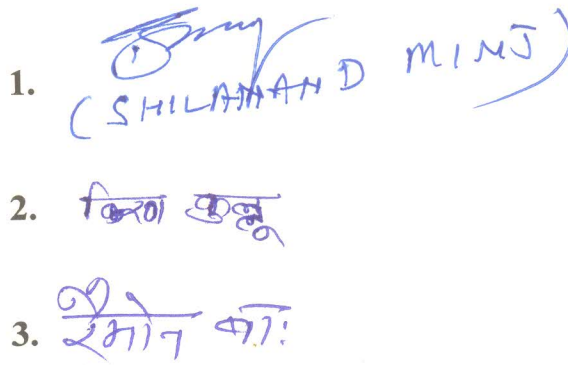 1.
(SHILANAND MINJ)
2. किरण कुल्लू
3. रैमोन बा: